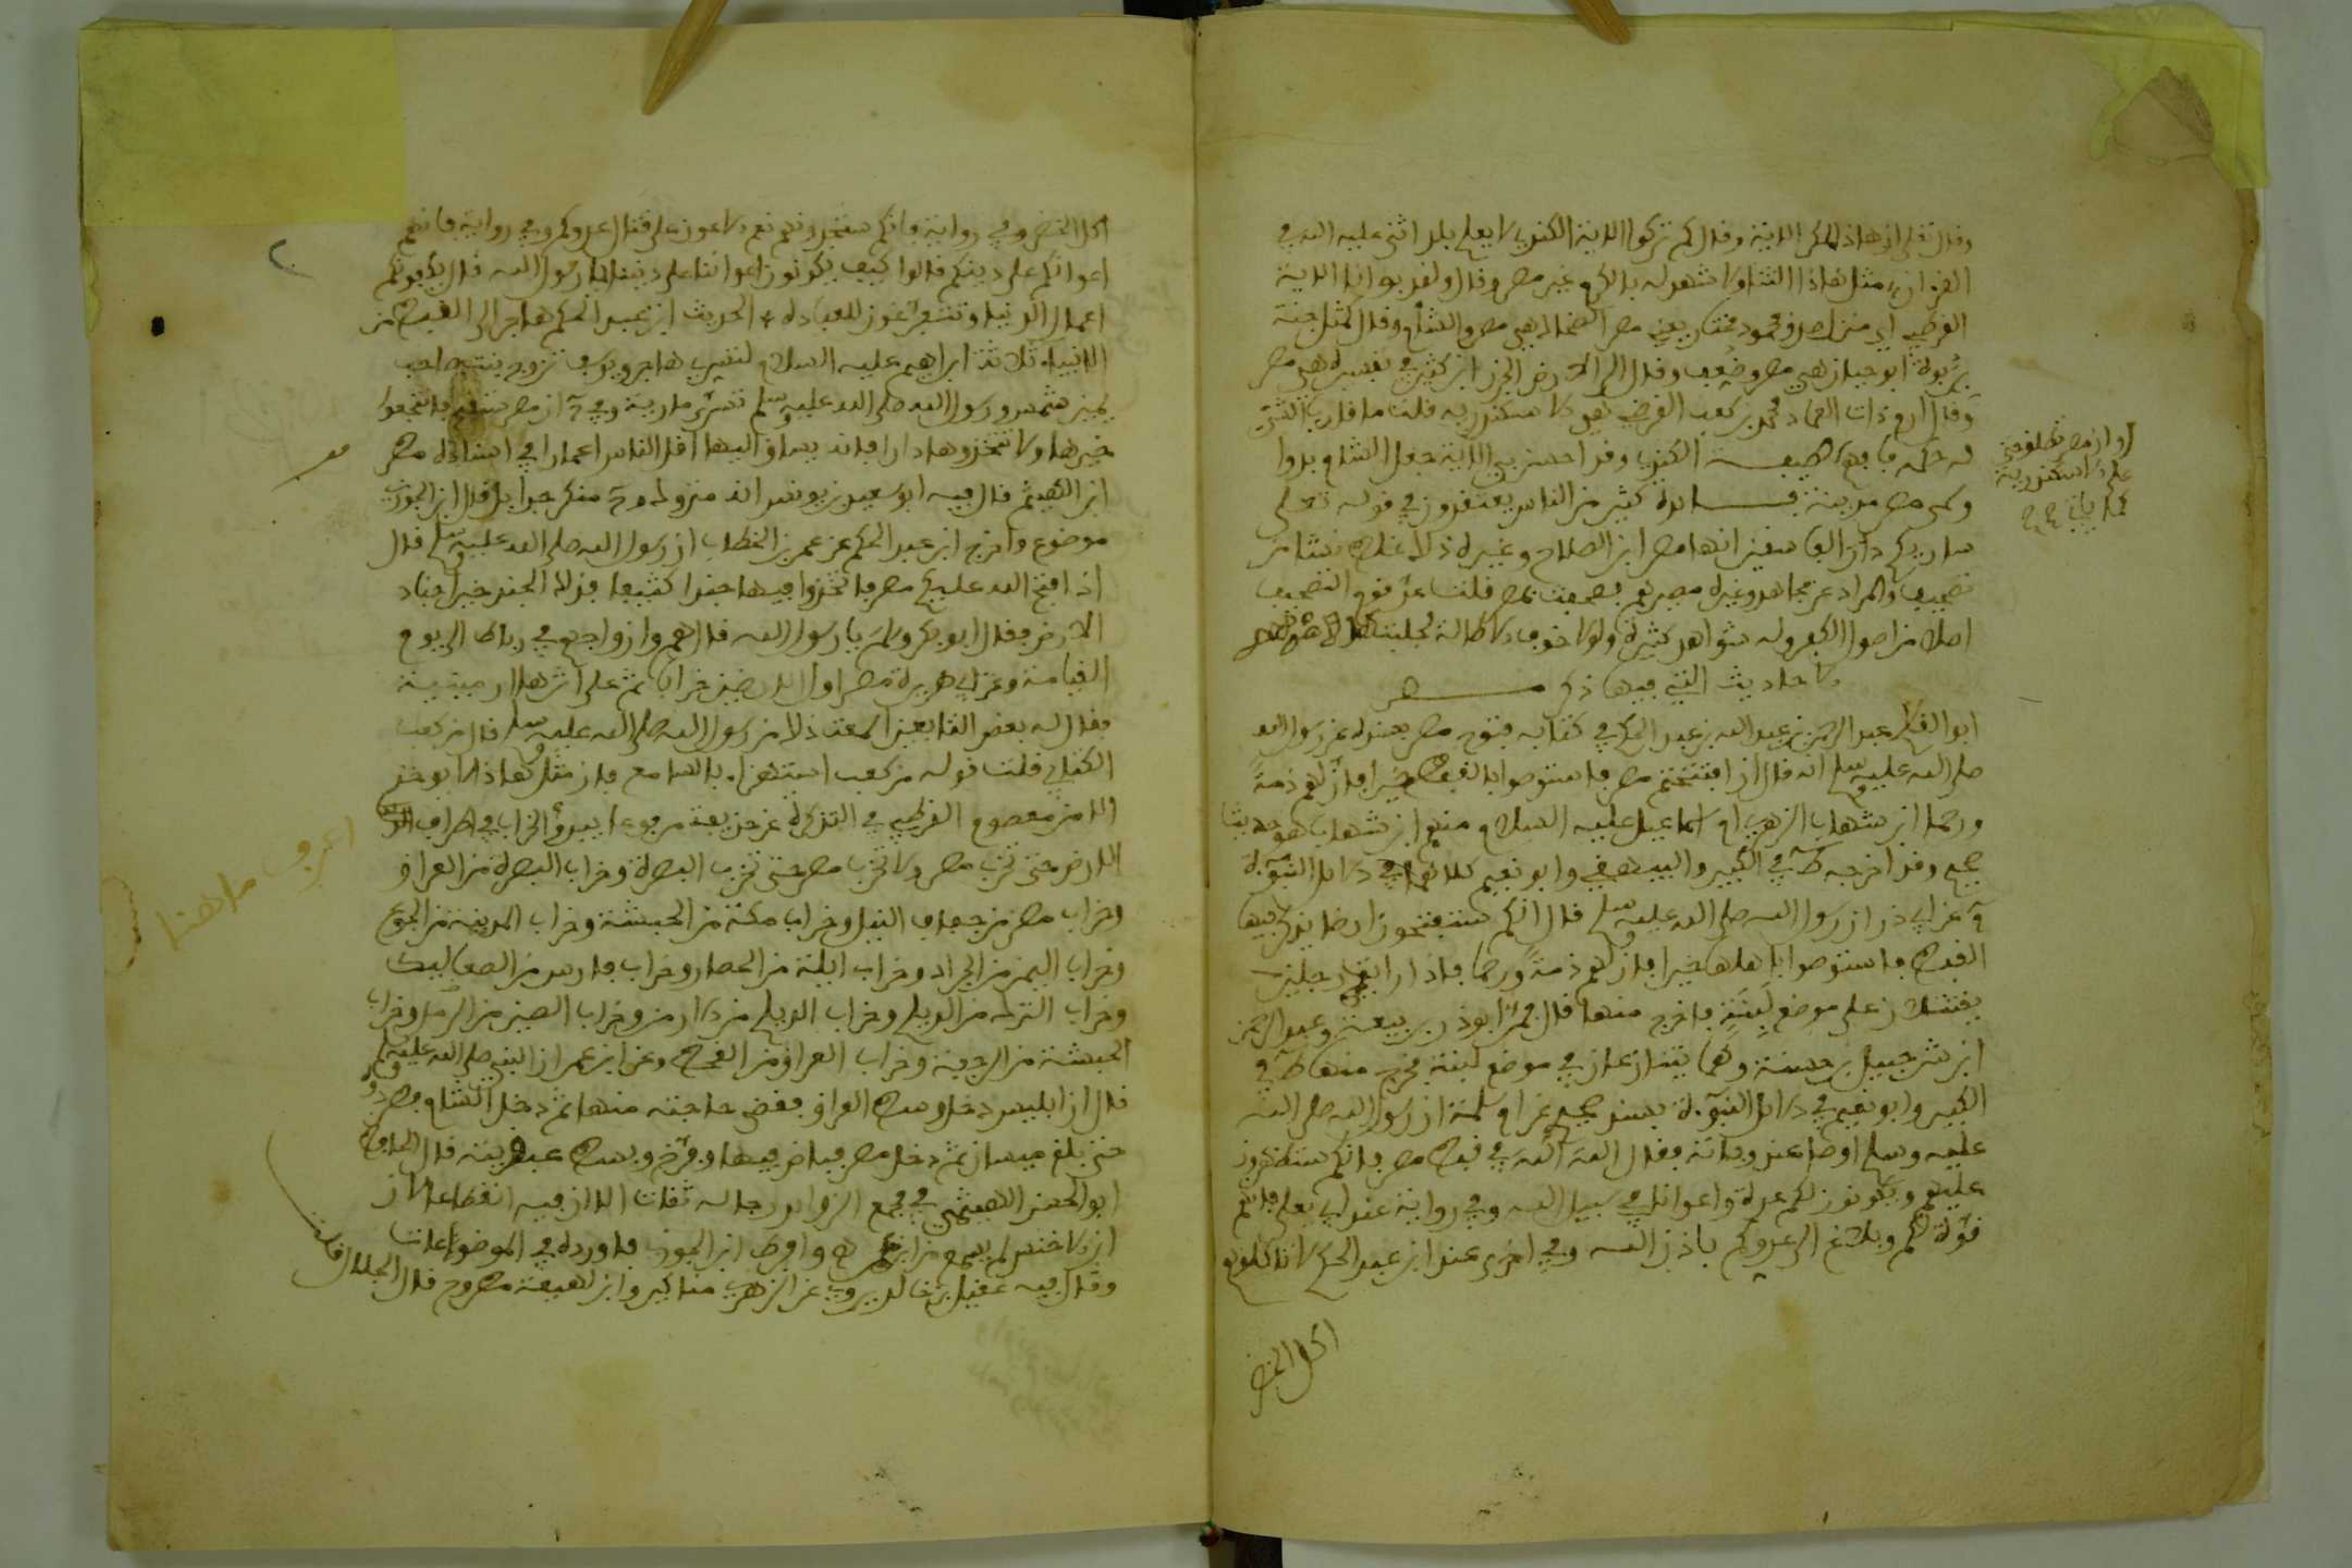 وقال تعلى ان هاذا لمكر الاية وقال كم تركوا الاية الكندي لا يعلم بلد اثنى عليه الله في
القرءان مثل هاذا الثناء ولا شهد له بالكرم غير مصر وقال ولقد بوانا الاية
القرطبي اي منزل صدق محمود مختار يعني مصر الضحاك هي مصر والشام وقال كمثل جنة
بربوة ابو حيان هي مصر وضعف وقال الى الارض الجرز ابن كثير في تفسيره هي مصر
وقال ارم ذات العماد محمد بن كعب القرضي هي الاسكندرية قلت ما قارب الشيء
له حكمه فافهم لطيفة الكندي وقد احسن بي الاية جعل الشام بدوا
وسمى مصر مدينة فائدة كثير من الناس يعتقدون في قوله تعلى
ساريكم دار الفاسقين انها مصر ابن الصلاح وغيره ذلك غلط نشا من
تصحيف والمراد عن مجاهد وغيره مصيرهم فصحفت بمصر قلت
اصلا من اصول الكفر وله شواهد كثيرة ولولا خوف الاطالة لجلبت
الاحاديث التي فيها ذكر مصر
ابو القاسم عبد الرحمن بن عبد الله بن عبد الحكم في كتابه فتوح مصر بسنده عن رسول الله
صلى الله عليه وسلم انه قال اذا افتتحتم مصر فاستوصوا بالقبط خيرا فان لهم ذمة
ورحما ابن شهاب الزهري ام اسماعيل عليه السلام منهم ابن شهاب هو حديث
صحيح وقد اخرجه ط في الكبير والبيهقي وابو نعيم كلاهما في دلائل النبوءة
م عن ابي ذر ان رسول الله صلى الله عليه وسلم قال انكم ستفتحون ارضا يذكر فيها
القيراط فاستوصوا باهلها خيرا فان لهم ذمة ورحما فاذا رايتم رجلين
يقتتلان على موضع لبنة فاخرج منها قال فمر ابو ذر بربيعة وعبد الرحمن
ابن شرحبيل بن حسنة وهما يتنازعان في موضع لبنة فخرج منها ط في
الكبير وابو نعيم في دلائل النبوءة بسند صحيح عن ام سلمة ان رسول الله صلى الله
عليه وسلم اوصى عند وفاته فقال الله الله في قبط مصر فانكم ستظهرون
عليهم ويكونون لكم عدة واعوانا في سبيل الله وفي رواية عند ابي يعلى فانهم
قوة لكم وبلاغ الى عدوكم باذن الله وفي اخرى عند ابن عبد الحكم
اكل الخضر
علم الاسكندرية
كما ياتي
اكل الخضر وفي رواية فانكم ستجدونهم نعم الاعوان على قتال عدوكم وفي رواية فانهم
اعوانكم على دينكم قالوا كيف يكونون اعواننا على ديننا يا رسول الله قال يكفونكم
اعمال الدنيا وتتفرغون للعبادة الحديث ابن عبد الحكم صاهر الى القبط من
الانبياء ثلاثة ابراهيم عليه السلام لتسري هاجر ويوسف تزوج بنت صاحب
عين شمس ورسول الله صلى الله عليه وسلم تسرى مارية وفي ان مصر ستفتح فانتجعوا
خيرها ولا تتخذوها دارا فانه يساق اليها اقل الناس اعمارا في اسناده مطهر
ابن الهيثم قال فيه ابو سعيد بن يونس انه متروك و منكر جدا بل قال ابن الجوزي
موضوع واخرج ابن عبد الحكم عن عمر بن الخطاب ان رسول الله صلى الله عليه وسلم قال
اذا فتح الله عليكم مصر فاتخذوا فيها جندا كثيفا فذلك الجند خير اجناد
الارض فقال ابو بكر ولم يا رسول الله قال هم وازواجهم في رباط الى يوم
القيامة وعن ابي هريرة مصر اول الارضين خرابا ثم على اثرها ارمينية
فقال له بعض التابعين اسمعت ذلك من رسول الله صلى الله عليه وسلم قال من كعب
الكتابي قلت قوله من كعب استهزاء بالسامع فان مثل هاذا لا يوخذ
الا من معصوم القرطبي في التذكرة عن حذيفة مرفوعا يبدؤ الخراب في اطراف
الارض حتى تخرب مصر ولا تخرب مصر حتى تخرب البصرة وخراب البصرة من العراق
وخراب مصر من جفاف النيل وخراب مكة من الحبشة وخراب المدينة من الجوع
وخراب اليمن من الجراد وخراب ايلة من الحصار وخراب فارس من الصعاليك
وخراب الترك من الديلم وخراب الديلم من الارمن وخراب الصين من الرمل وخراب
الحبشة من الرجفة وخراب العراق من القحط وعن ابن عمر ان النبي صلى الله عليه وسلم
قال ان ابليس دخل العراق فقضى حاجته منها ثم دخل الشام فطردوه
حتى بلغ ميسان ثم دخل مصر فباض فيها وفرخ وبسط عبقريته قال الحافظ
ابو الحسن الهيثمي في مجمع الزوائد رجاله ثقات الا ان فيه انقطاعا لان
ابن الاخنس لم يسمع من ابن عمر وافرط ابن الجوزي فاورده في الموضوعات
وقال فيه عقيل بن خالد يروي عن الزهري مناكير وابن لهيعة مطروح قال الجلال
اعرف ما هنا